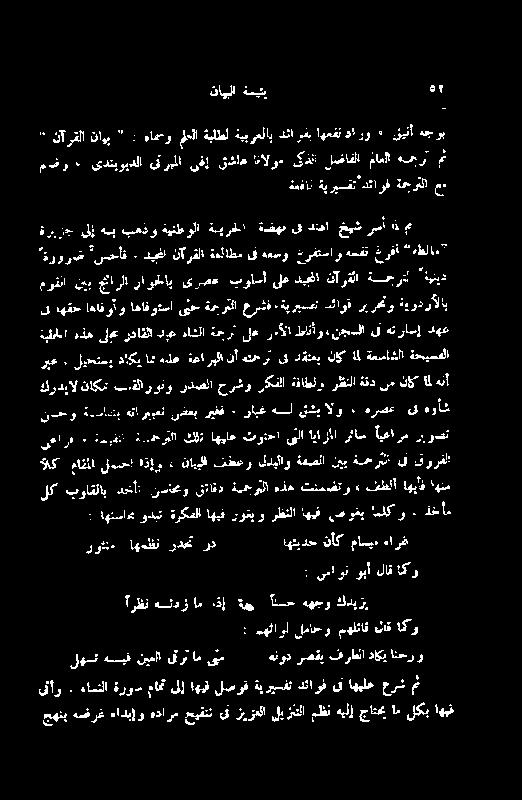 ٥٢ يتيمة البيان
بوجه أنيق ، وزاد نفعها بفوائد بالعربية لطلبة العلم وسماه : " بيان القرآن "
ثم ترجمه العالم الفاضل الذكى مولانا عاشق إلهى الميرتى الديوبندى ، وضم
مع الترجمة فوائد تفسيرية نافعة
ثم لما أسر شيخ الهند فى نهضة الحرية الوطنية وذهب به إلى جزيرة
"مالطه" أفرغ نفسه واستفرغ وسعه فى مطالعة القرآن المجيد . فأحس ضرورة
دينية لترجمة القرآن المجيد على أسلوب عصرى بالحوار الرائج بين القوم
بالأردوية وتحرير فوائد تفسيرية، فشرع الترجمة حتى استوفاها وأوفاها حقها فى
عهد إسارته فى السجن، وأناط الأمر على ترجمة الشاه عبد القادر على هذه
الفصيحة الشاسعة لما كان يعتقد فى ترجمته أن البراعة عنه مما يكاد يستحيل . غير
أنه لما كان من دقة النظر ولطافة الفكر وشرح الصدر ونور القلب بمكان لايدرك
شأوه فى عصره ، ولا يشق لسه غبار . فغير بعض تعبيراته بنفاسة وحسن
تصوير مراعياً سائر المزايا التى احتوت عليها تلك الترجمة النفيسة ، فراعى
الفروق فى الترجمة بين الصفة والبدل وعطف البيان ، وإذا احتمل المقام كلاً
منها فأيها ألطف ، وتضمنت هذه الترجمة دقائق ومحاسن تأخذ بالقلوب كل
مأخذ . وكلما يغوص فيها النظر ويغور فيها الفكرة تبدو محاسنها :
غراء مبسام كأن حديثها در تحدر نظمها منثور
وكما قال أبو نواس :
يزيدك وجهه حسناً إذا ما زدته نظراً
وكما قال قائلهم وحامل لوائهم :
ورحنا يكاد الطرف يقصر دونه متى ما ترق العين فيه تسهل
ثم شرح عليها فى فوائد تفسيرية فوصل فيها إلى تمام سورة النساء . وأتى
فيها بكل ما يحتاج إليه نظم التنزيل العزيز فى تنقيح مراده وإبداء غرضه بنهج